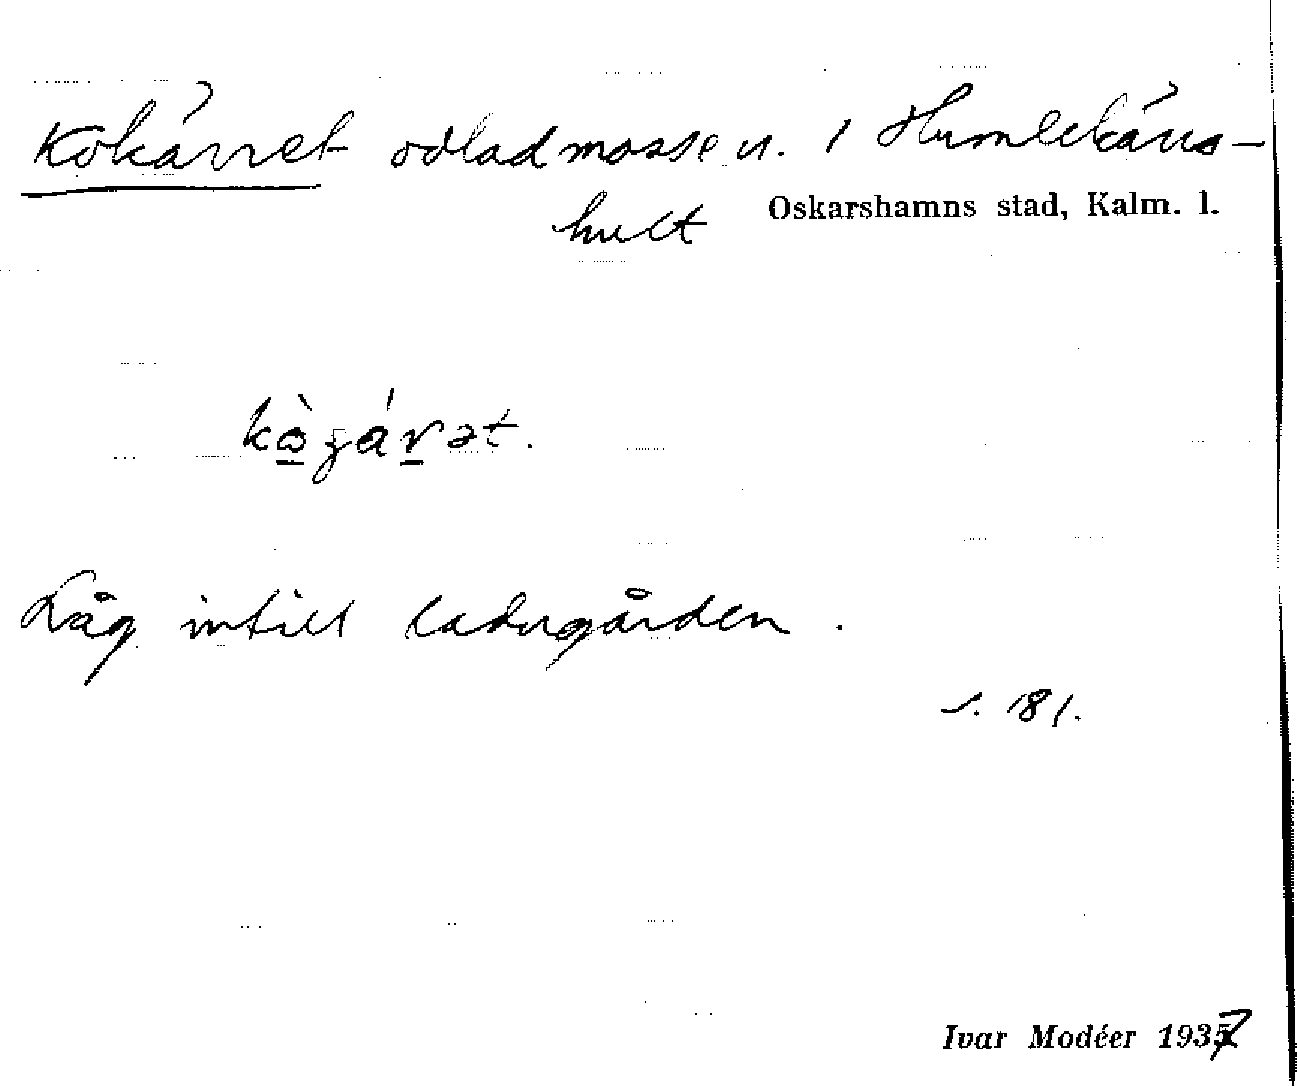 Kokärret odlad mosse u. / Humlekärrs-
hult
Oskarshamns stad, Kalm. l.
Låg intill ladugården.
s. 181.
Ivar Modéer 1937